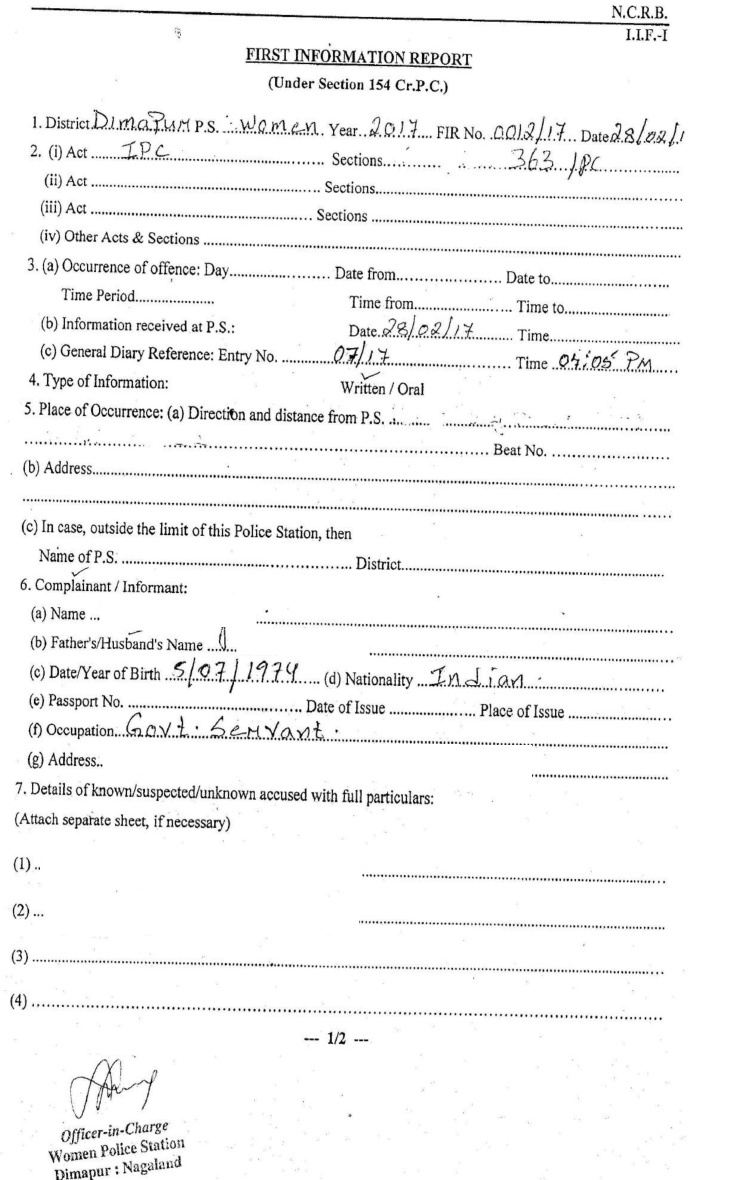 N.C.R.B.
I.I.F.-I
FIRST INFORMATION REPORT
(Under Section 154 Cr.P.C.)
1. District Dimapur P.S. Women. Year 2017 FIR No. 0012/17 Date 28/02/1
2. (i) Act I.P.C Sections 363 IPC
(ii) Act Sections
(iii) Act Sections
(iv) Other Acts & Sections
3. (a) Occurrence of offence: Day Date from Date to
Time Period Time from Time to
(b) Information received at P.S.: Date 28/02/17 Time
(c) General Diary Reference: Entry No. 07/17 Time 04:05 PM
4. Type of Information: Written / Oral
5. Place of Occurrence: (a) Direction and distance from P.S.
Beat No.
(b) Address
(c) In case, outside the limit of this Police Station, then
Name of P.S. District
6. Complainant / Informant:
(a) Name
(b) Father's/Husband's Name
(c) Date/Year of Birth 5/07/1974 (d) Nationality Indian
(e) Passport No. Date of Issue Place of Issue
(f) Occupation Govt. Servant.
(g) Address
7. Details of known/suspected/unknown accused with full particulars:
(Attach separate sheet, if necessary)
(1)
(2)
(3)
(4)
--- 1/2 ---
Officer-in-Charge
Women Police Station
Dimapur : Nagaland